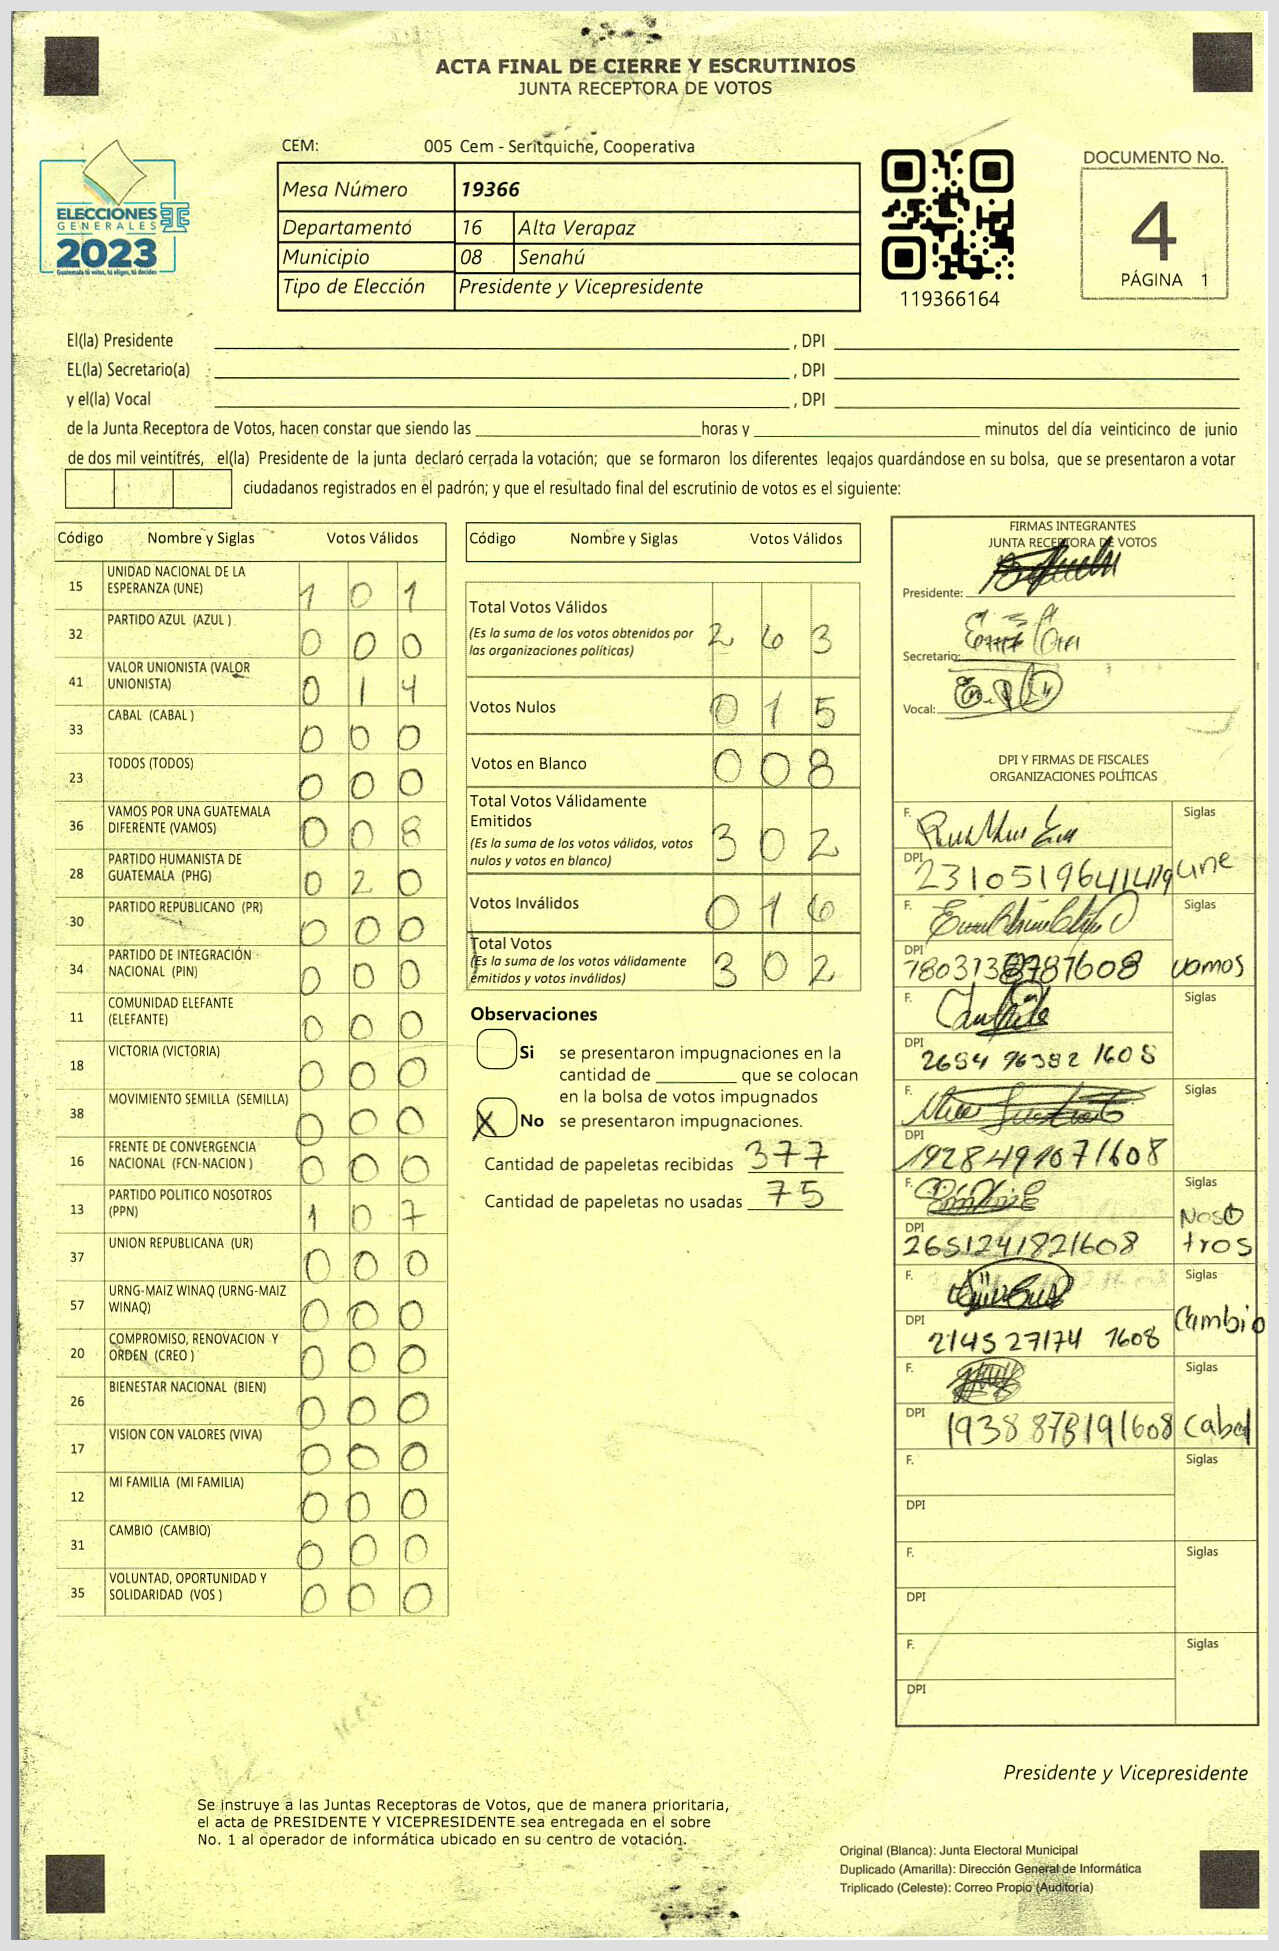 ACTA FINAL DE CIERRE Y ESCRUTINIOS
JUNTA RECEPTORA DE VOTOS
ELECCIONES
GENERALES
2023
Guatemala tú votas, tú eliges, tú decides
CEM: 005 Cem - Seritquiche, Cooperativa
Mesa Número 19366
Departamento 16 Alta Verapaz
Municipio 08 Senahú
Tipo de Elección Presidente y Vicepresidente
119366164
DOCUMENTO No.
4
PÁGINA 1
El(la) Presidente , DPI
EL(la) Secretario(a) , DPI
y el(la) Vocal , DPI
de la Junta Receptora de Votos, hacen constar que siendo las horas y minutos del día veinticinco de junio
de dos mil veintitrés, el(la) Presidente de la junta declaró cerrada la votación; que se formaron los diferentes legajos quardándose en su bolsa, que se presentaron a votar
ciudadanos registrados en el padrón; y que el resultado final del escrutinio de votos es el siguiente:
Código Nombre y Siglas Votos Válidos
15 UNIDAD NACIONAL DE LA ESPERANZA (UNE) 1 0 1
32 PARTIDO AZUL (AZUL ) 0 0 0
41 VALOR UNIONISTA (VALOR UNIONISTA) 0 1 4
33 CABAL (CABAL ) 0 0 0
23 TODOS (TODOS) 0 0 0
36 VAMOS POR UNA GUATEMALA DIFERENTE (VAMOS) 0 0 8
28 PARTIDO HUMANISTA DE GUATEMALA (PHG) 0 2 0
30 PARTIDO REPUBLICANO (PR) 0 0 0
34 PARTIDO DE INTEGRACIÓN NACIONAL (PIN) 0 0 0
11 COMUNIDAD ELEFANTE (ELEFANTE) 0 0 0
18 VICTORIA (VICTORIA) 0 0 0
38 MOVIMIENTO SEMILLA (SEMILLA) 0 0 0
16 FRENTE DE CONVERGENCIA NACIONAL (FCN-NACION ) 0 0 0
13 PARTIDO POLITICO NOSOTROS (PPN) 1 0 7
37 UNION REPUBLICANA (UR) 0 0 0
57 URNG-MAIZ WINAQ (URNG-MAIZ WINAQ) 0 0 0
20 COMPROMISO, RENOVACION Y ORDEN (CREO ) 0 0 0
26 BIENESTAR NACIONAL (BIEN) 0 0 0
17 VISION CON VALORES (VIVA) 0 0 0
12 MI FAMILIA (MI FAMILIA) 0 0 0
31 CAMBIO (CAMBIO) 0 0 0
35 VOLUNTAD, OPORTUNIDAD Y SOLIDARIDAD (VOS ) 0 0 0
Código Nombre y Siglas Votos Válidos
Total Votos Válidos 2 6 3
(Es la suma de los votos obtenidos por
las organizaciones políticas)
Votos Nulos 0 1 5
Votos en Blanco 0 0 8
Total Votos Válidamente
Emitidos 3 0 2
(Es la suma de los votos válidos, votos
nulos y votos en blanco)
Votos Inválidos 0 1 6
Total Votos 3 0 2
(Es la suma de los votos válidamente
emitidos y votos inválidos)
Observaciones
Si se presentaron impugnaciones en la
cantidad de que se colocan
en la bolsa de votos impugnados
X No se presentaron impugnaciones.
Cantidad de papeletas recibidas 377
Cantidad de papeletas no usadas 75
FIRMAS INTEGRANTES
JUNTA RECEPTORA DE VOTOS
Presidente:
Secretario:
Vocal:
DPI Y FIRMAS DE FISCALES
ORGANIZACIONES POLÍTICAS
F. Siglas
DPI une
F. Siglas
DPI vamos
F. Siglas
DPI 2684 96382 1608
F. Siglas
DPI 1928491071608
F. Siglas
DPI 2651241821608 Noso tros
F. Siglas
DPI 2145 27174 1608 Cambio
F. Siglas
DPI Cabal
F. Siglas
DPI
F. Siglas
DPI
F. Siglas
DPI
Presidente y Vicepresidente
Se instruye a las Juntas Receptoras de Votos, que de manera prioritaria,
el acta de PRESIDENTE Y VICEPRESIDENTE sea entregada en el sobre
No. 1 al operador de informática ubicado en su centro de votación.
Original (Blanca): Junta Electoral Municipal
Duplicado (Amarilla): Dirección General de Informática
Triplicado (Celeste): Correo Propio (Auditoría)